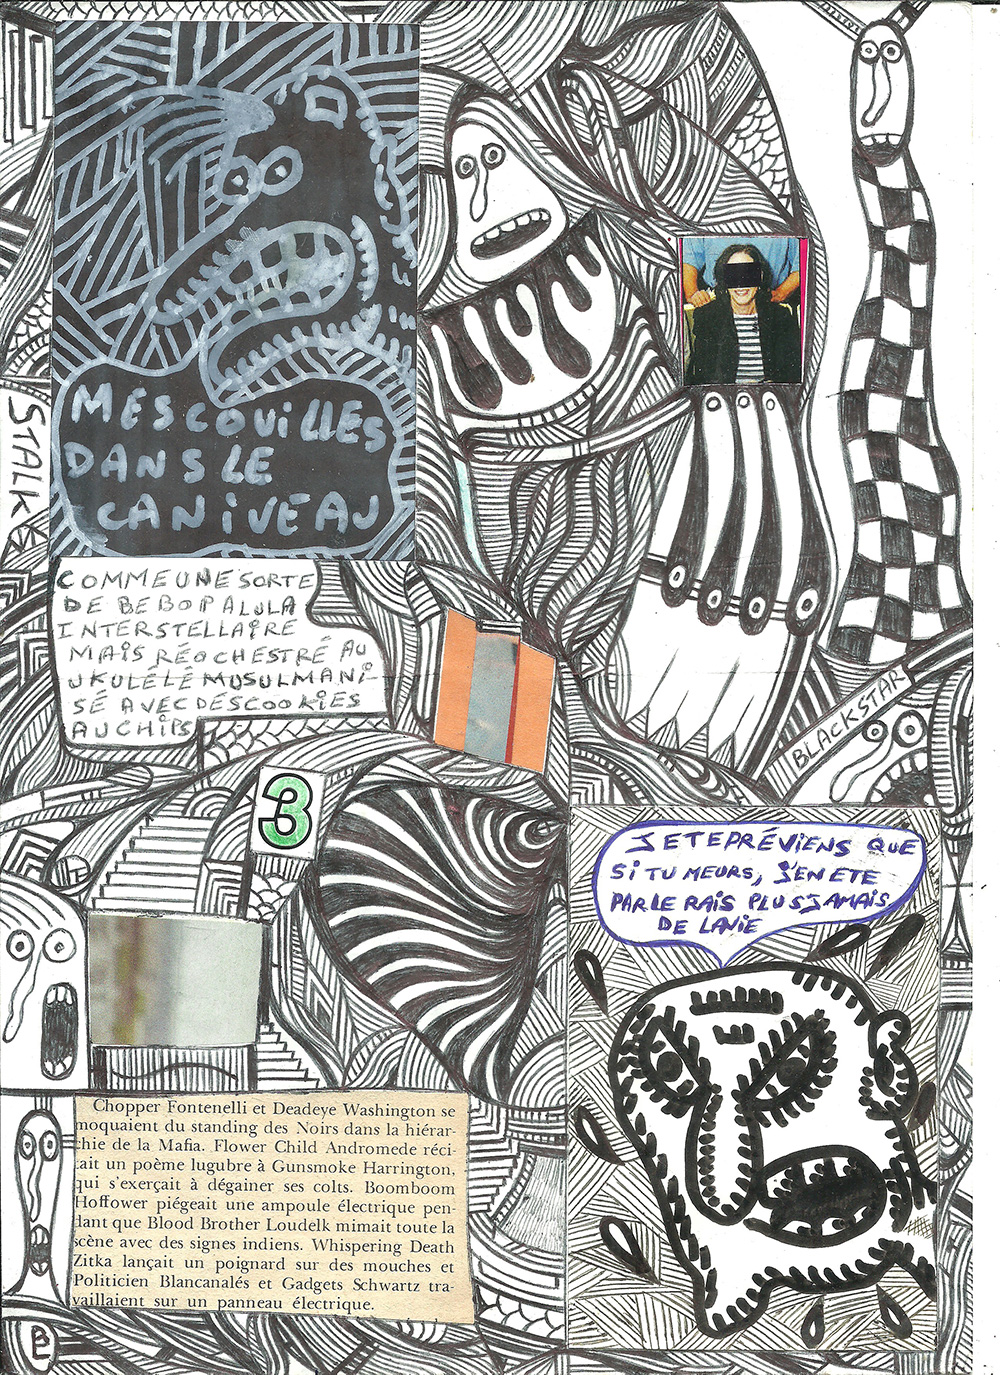 MES COUILLES
DANS LE
CANIVEAU
STALK
COMME UNE SORTE
DE BEBOPALULA
INTERSTELLAIRE
MAIS RÉOCHESTRÉ AU
UKULÉLÉ MUSULMANI
SÉ AVEC DES COOKIES
AU CHIPS
BLACKSTAR
3
JE TE PRÉVIENS QUE
SI TU MEURS, J'EN ETE
PARLERAIS PLUS JAMAIS
DE LA VIE
Chopper Fontenelli et Deadeye Washington se
moquaient du standing des Noirs dans la hiérar-
chie de la Mafia. Flower Child Andromede réci-
tait un poème lugubre à Gunsmoke Harrington,
qui s'exerçait à dégainer ses colts. Boomboom
Hoffower piégeait une ampoule électrique pen-
dant que Blood Brother Loudelk mimait toute la
scène avec des signes indiens. Whispering Death
Zitka lançait un poignard sur des mouches et
Politicien Blancanalés et Gadgets Schwartz tra-
vaillaient sur un panneau électrique.